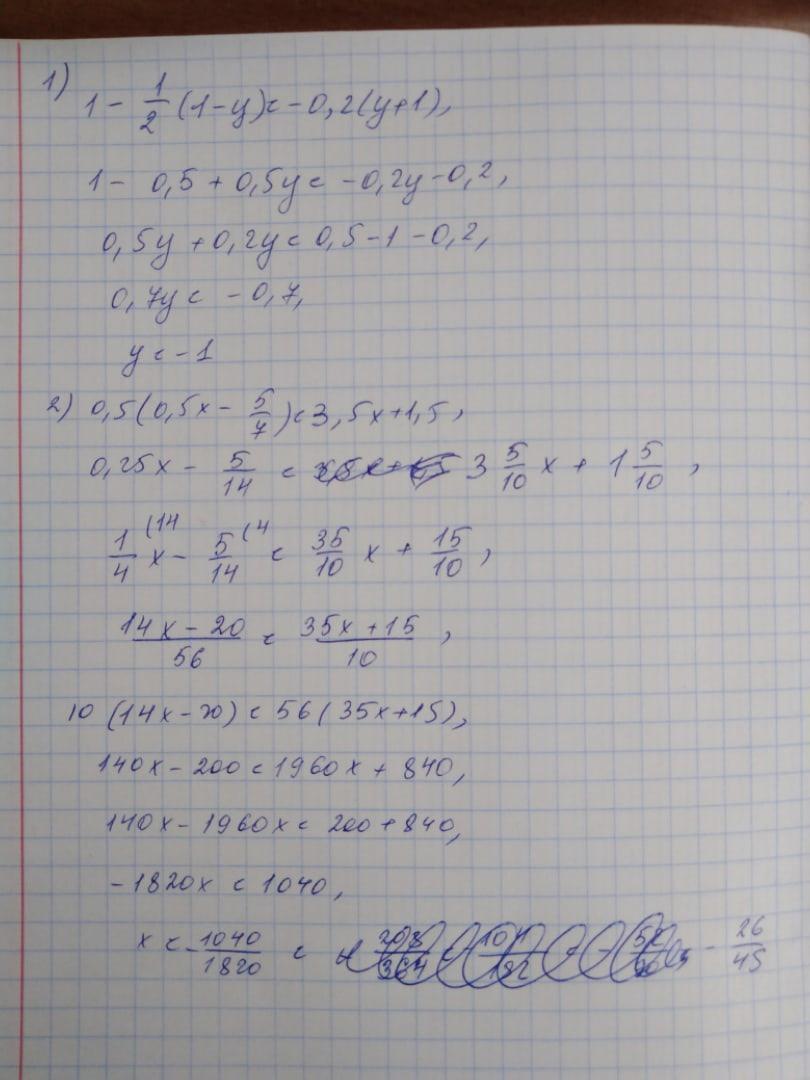 1) 1 - 1/2 (1-y) < -0,2(y+1),
1 - 0,5 + 0,5y < -0,2y - 0,2,
0,5y + 0,2y < 0,5 - 1 - 0,2,
0,7y < -0,7,
y < -1
2) 0,5(0,5x - 5/7) < 3,5x + 1,5,
0,25x - 5/14 < 3 5/10 x + 1 5/10,
1/4 (14 x - 5/14 (4 < 35/10 x + 15/10,
14x - 20/56 < 35x + 15/10,
10 (14x - 20) < 56 (35x + 15),
140x - 200 < 1960x + 840,
140x - 1960x < 200 + 840,
-1820x < 1040,
x < - 1040/1820 < - 26/45